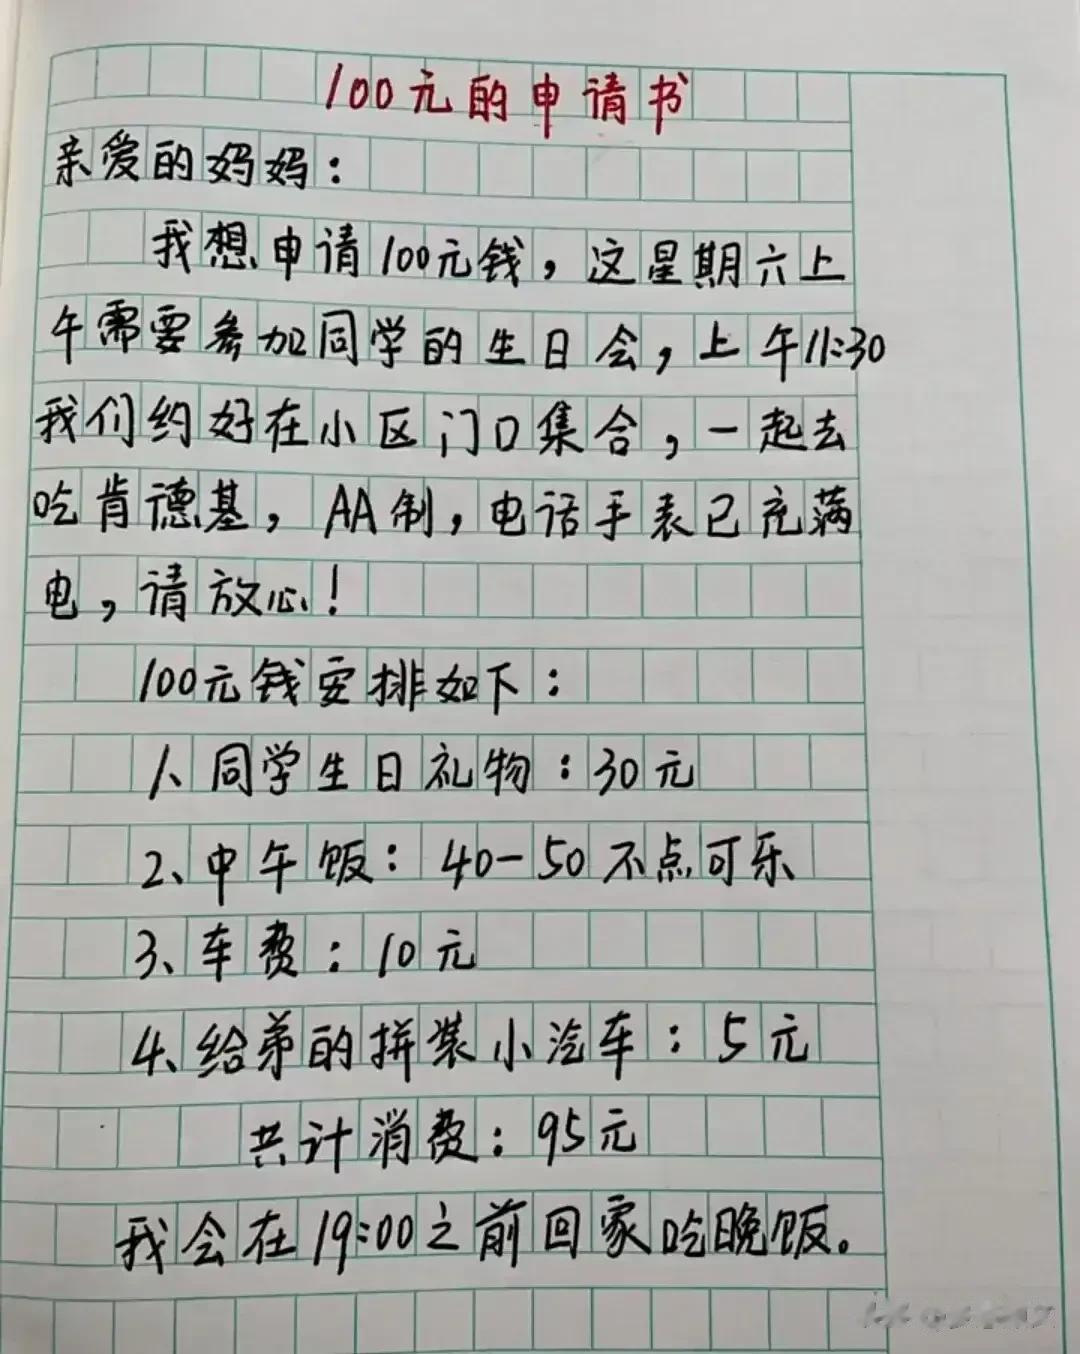 100元的申请书
亲爱的妈妈：
我想申请100元钱，这星期六上
午需要参加同学的生日会，上午11:30
我们约好在小区门口集合，一起去
吃肯德基，AA制，电话手表已充满
电，请放心！
100元钱安排如下：
1、同学生日礼物：30元
2、中午饭：40-50不点可乐
3、车费：10元
4、给弟的拼装小汽车：5元
共计消费：95元
我会在19:00之前回家吃晚饭。